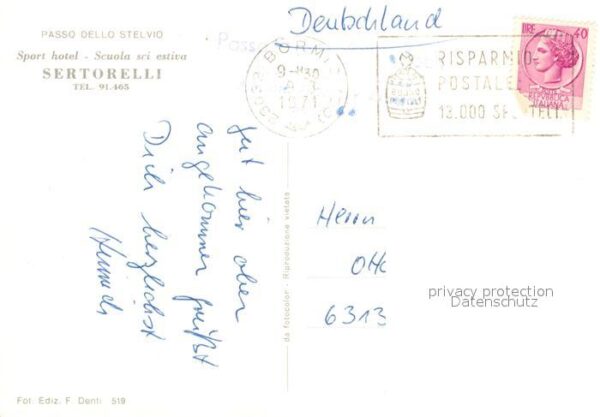 PASSO DELLO STELVIO
Sport hotel - Scuola sci estiva
SERTORELLI
TEL. 91.465
Deutschland
Pass
BORMIO
1971
23032
RISPARMIO
POSTALE
13.000 SPORTELLI
LIRE 40
ITALIANA
gut hier oben
angekommen grüßt
Dich herzlichst
Heinrich
da fotocolor - Riproduzione vietata
Herrn
6313
privacy protection
Datenschutz
Fot. Ediz. F. Denti 519